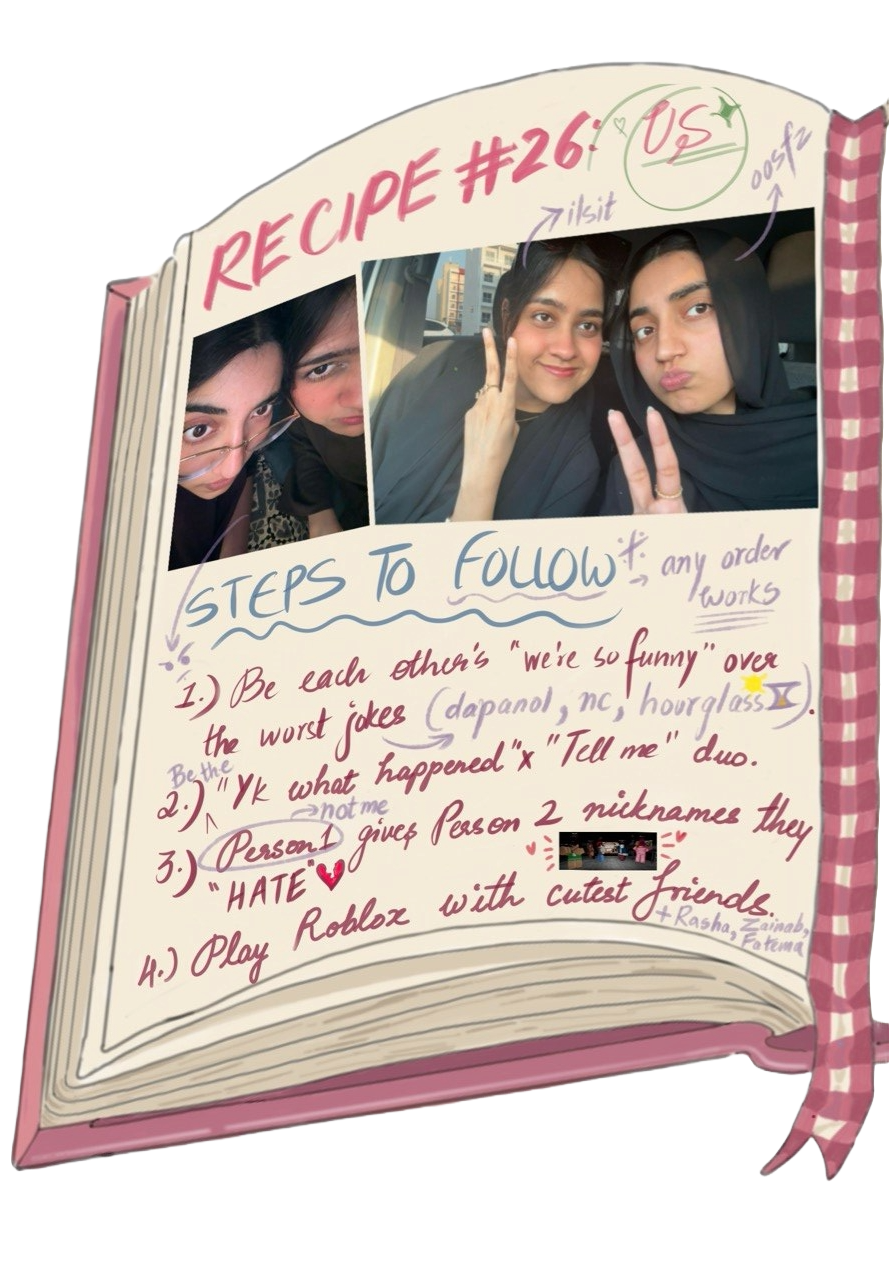 RECIPE #26: US
ilsit
oosfz
STEPS TO FOLLOW * → any order
works
1.) Be each other's "we're so funny" over
the worst jokes (dapanol, nc, hourglass⌛).
Be the
2.) "Yk what happened" x "Tell me" duo.
→ not me
3.) Person 1 gives Person 2 nicknames they
"HATE" 💔
4.) Play Roblox with cutest friends.
+ Rasha, Zainab,
Fatema